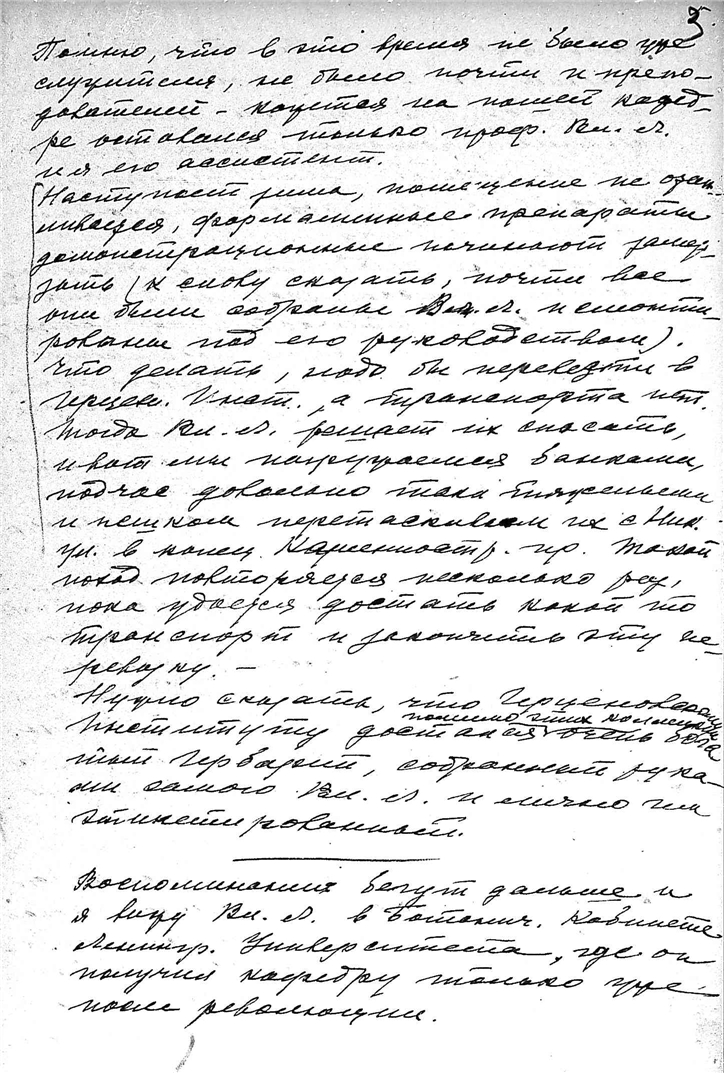 3
Помню, что в это время не было уже
служителя, не было почти и препо-
давателей – кажется на нашей кафед-
ре оставался только проф. Вл. Л.
и я его ассистент.
Наступает зима, помещение не отап-
ливается, формалинные препараты
демонстрационные начинают замер-
зать (к слову сказать, почти все
они были собраны Вл. Л. и смонти-
рованы под его руководством).
Что делать, надо бы перевезти в
Герцен. Инст., а транспорта нет.
Тогда Вл. Л. решает их спасать,
и вот мы нагружаемся банками,
подчас довольно таки тяжелыми
и пешком перетаскиваем их с Ник.
ул. в конец Каменноостр. пр. Такой
поход повторяется несколько раз,
пока удается достать какой то
транспорт и закончить эту пе-
ревозку. –
Нужно сказать, что Герценовскому
помимо этих коллекций
Институту достался очень бога
тый Гербарий, собранный рука-
ми самого Вл. Л. и лично им
этикетированный.
Воспоминания бегут дальше и
я вижу Вл. Л. в Ботанич. Кабинете
Ленингр. Университета, где он
получил кафедру только уже
после революции.